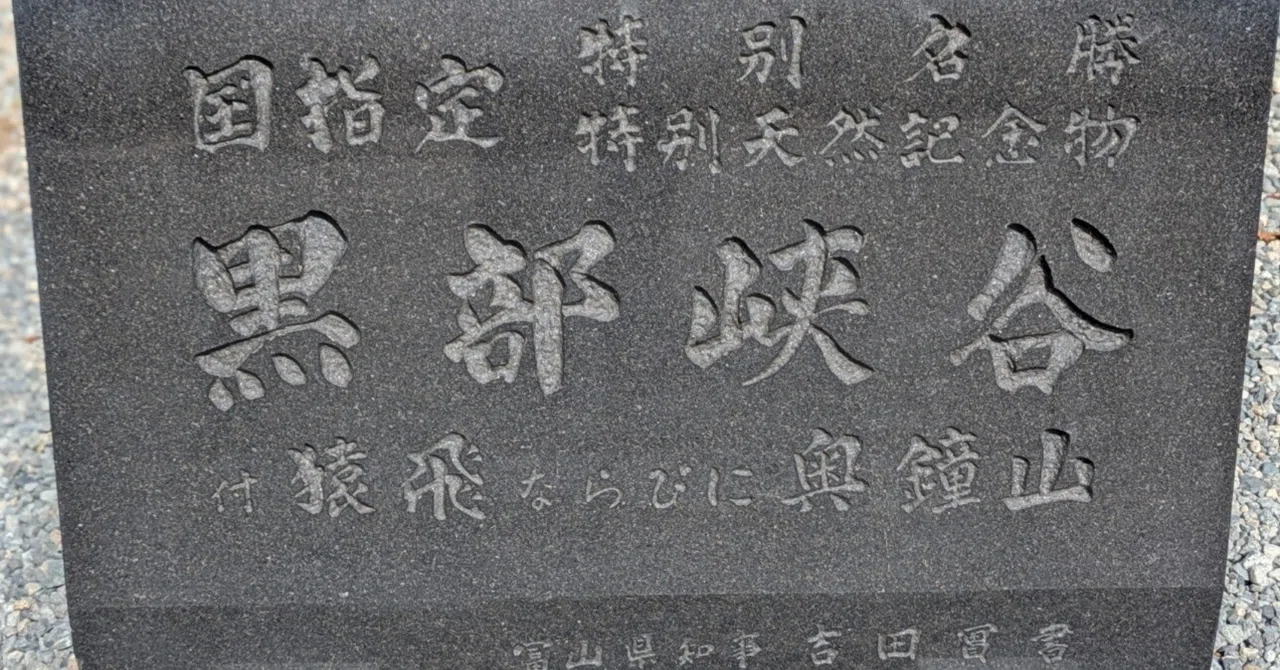 国指定
特別名勝
特別天然記念物
黒部峡谷
付猿飛ならびに奥鐘山
富山県知事 吉田實書